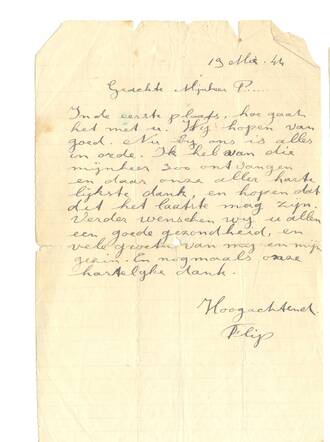 19 Mei. 44
Geachte Mijnheer P.....
In de eerste plaats, hoe gaat
het met u. Wij hopen van
goed. Nu bij ons is alles
in orde. Ik heb van die
mijnheer 300 ontvangen
en daar onze aller harte
lijkste dank, en hopen dat
dit het laatste mag zijn.
Verder wenschen wij u allen
een goede gezondheid, en
vele groeten van mij en mijn
gezin. En nogmaals onze
hartelijke dank.
Hoogachtend.
Flip